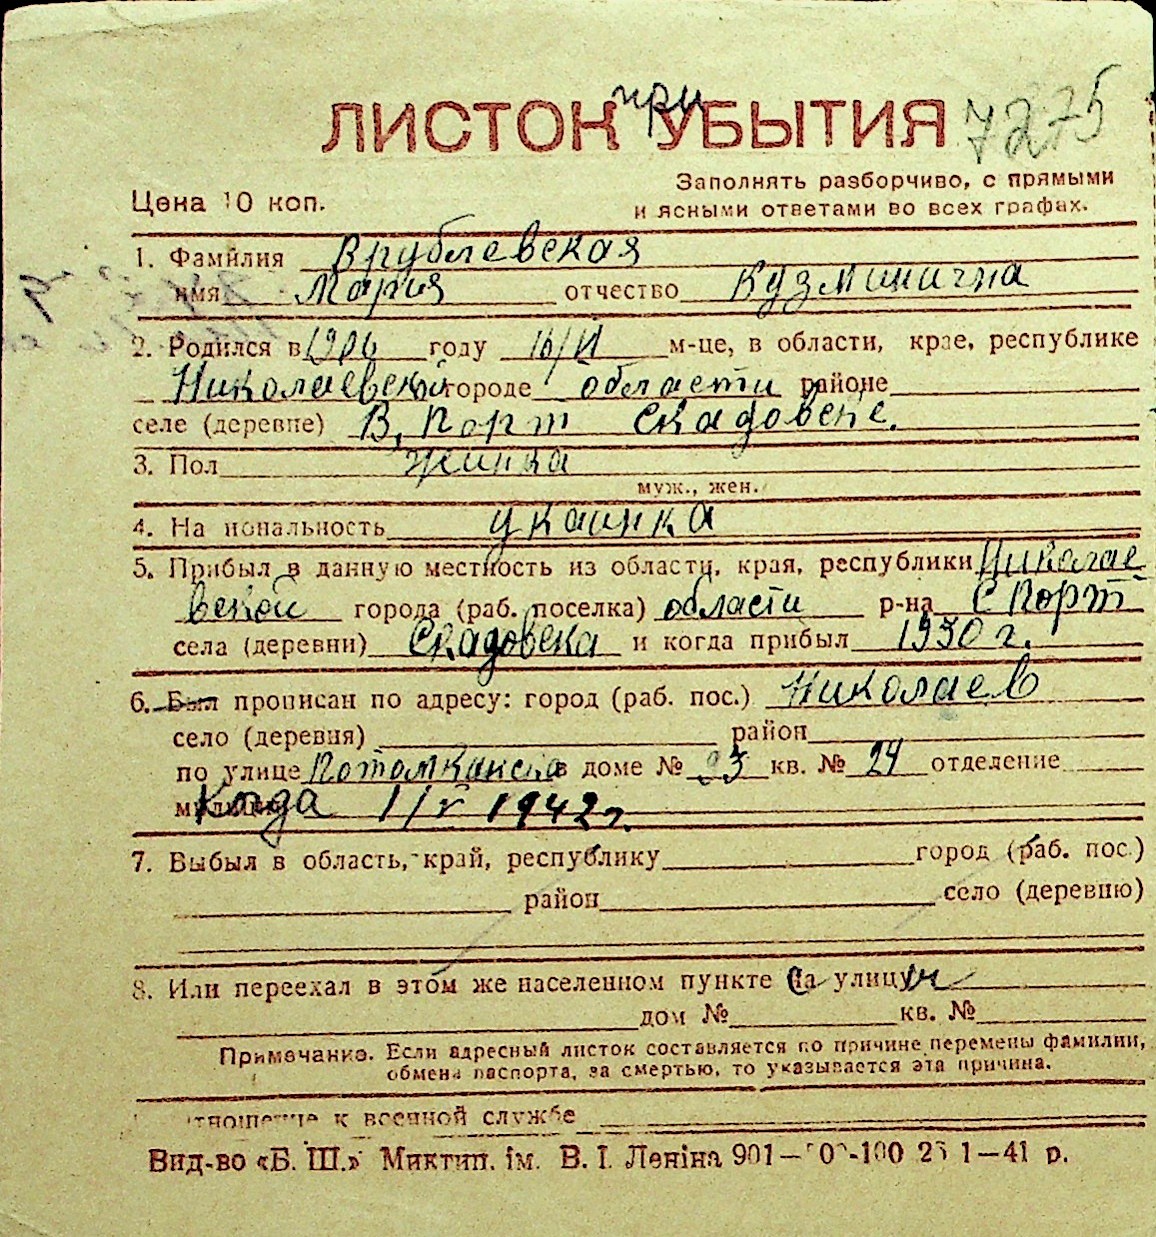 при 7275
ЛИСТОК УБЫТИЯ
Цена 10 коп.
Заполнять разборчиво, с прямыми
и ясными ответами во всех графах.
1. Фамилия Врублевская
имя Мария отчество Кузминична
2. Родился в 1906 году 16/VI м-це, в области, крае, республике
Николаевской городе области районе
селе (деревне) В, Порт Скадовске.
3. Пол жинка
муж., жен.
4. Национальность укаинка
5. Прибыл в данную местность из области, края, республики Николае
вской города (раб. поселка) области р-на С Порт
села (деревни) Скадовска и когда прибыл 1930 г.
6. Был прописан по адресу: город (раб. пос.) Николаев
село (деревня) район
по улице Потомканска в доме № 93 кв. № 24 отделение
милиции Когда 1/V 1942 г.
7. Выбыл в область, край, республику город (раб. пос.)
район село (деревню)
8. Или переехал в этом же населенном пункте на улицу
дом № кв. №
Примечание. Если адресный листок составляется по причине перемены фамилии,
обмена паспорта, за смертью, то указывается эта причина.
Отношение к военной службе
Вид-во «Б. Ш.» Миктип. ім. В. І. Леніна 901— 1—41 р.